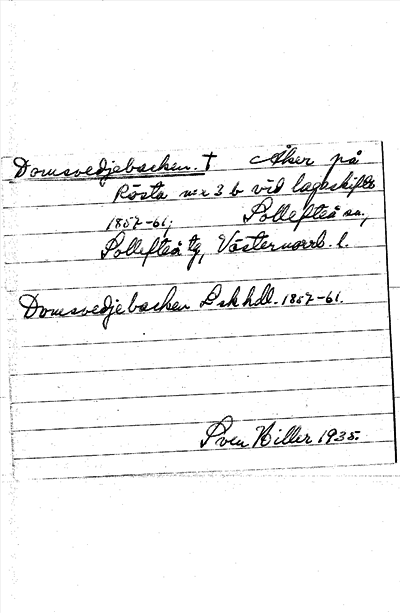 Domsvedjebacken. † Åker på
Rösta nr 3 b vid lagaskifte
1857-61; Sollefteå sn,
Sollefteå tg, Västernorrl. l.
Domsvedjebacken Lskhdl. 1857-61.
Sven Hiller 1935.